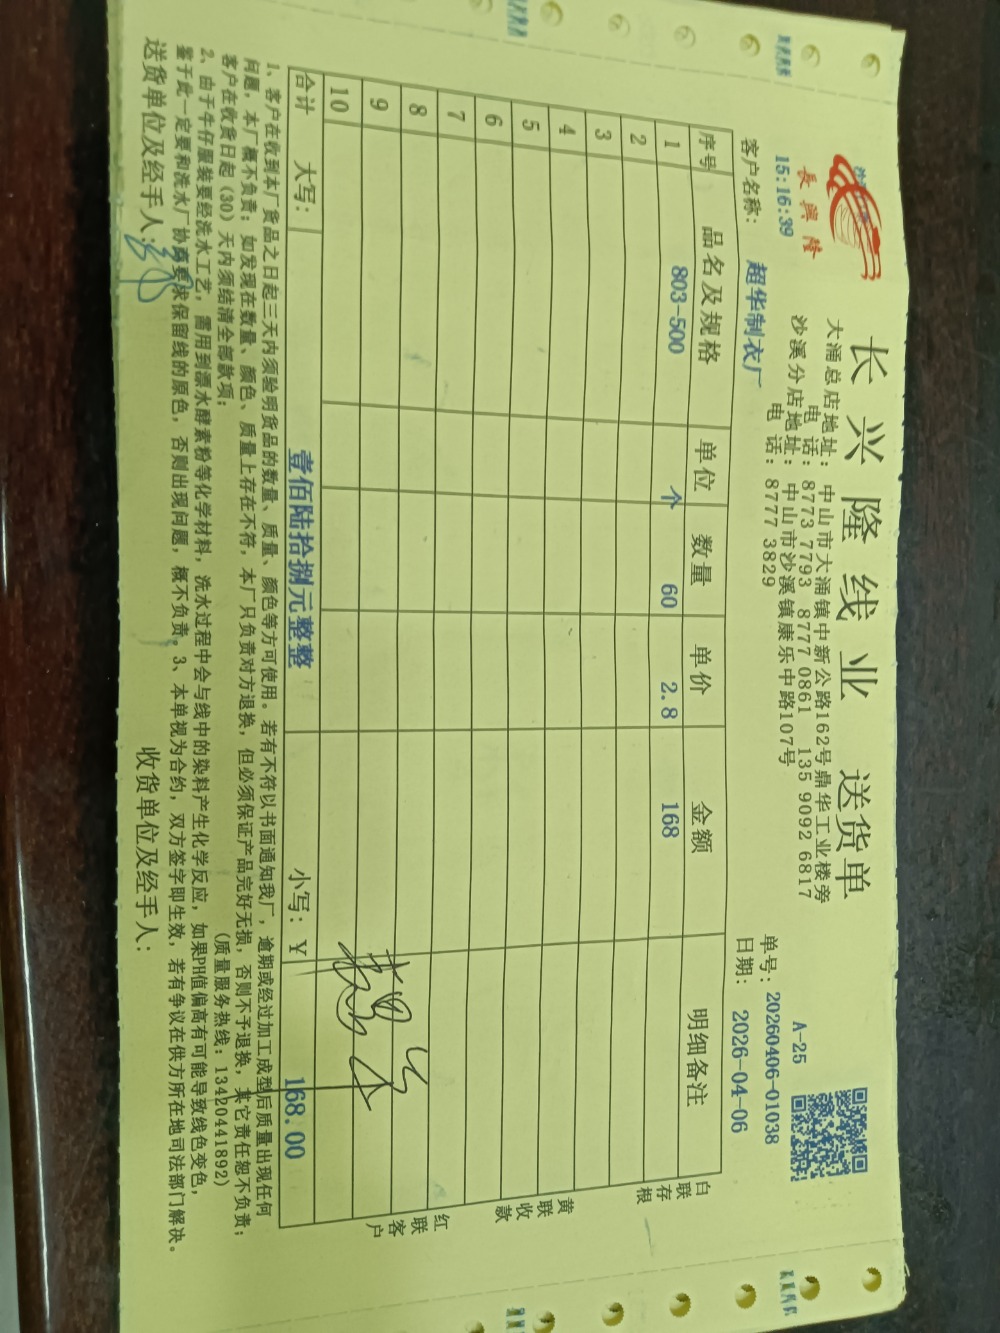 長興隆
15:16:39
长兴隆线业 送货单
大涌总店地址: 中山市大涌镇中新公路162号鼎华工业楼旁
电 话: 8773 7793 8777 0861 135 9092 6817
沙溪分店地址: 中山市沙溪镇康乐中路107号
电 话: 8777 3829
A-25
单号: 20260406-01038
客户名称: 超华制衣厂
日期: 2026-04-06
序号 品名及规格 单位 数量 单价 金额 明细备注
1 803-500 个 60 2.8 168
2
3
4
5
6
7
8
9
10
合计 大写: 壹佰陆拾捌元整整 小写: ¥ 168.00
白联存根
黄联收款
红联客户
1、客户在收到本厂货品之日起三天内须验明货品的数量、质量、颜色等方可使用。若有不符以书面通知我厂，逾期或经过加工成型后质量出现任何
问题，本厂概不负责；如发现在数量、颜色、质量上存在不符，本厂只负责对方退换，但必须保证产品完好无损，否则不予退换，其它责任恕不负责；
客户在收货日起（30）天内须结清全部款项； （质量服务热线：13420441892）
2、由于牛仔服装要经洗水工艺，需用到漂水酵素粉等化学材料，洗水过程中会与线中的染料产生化学反应，如果PH值偏高有可能导致线色变色，
鉴于此一定要和洗水厂协商要求保留线的原色，否则出现问题，概不负责。3、本单视为合约，双方签字即生效，若有争议在供方所在地司法部门解决。
送货单位及经手人: 收货单位及经手人: